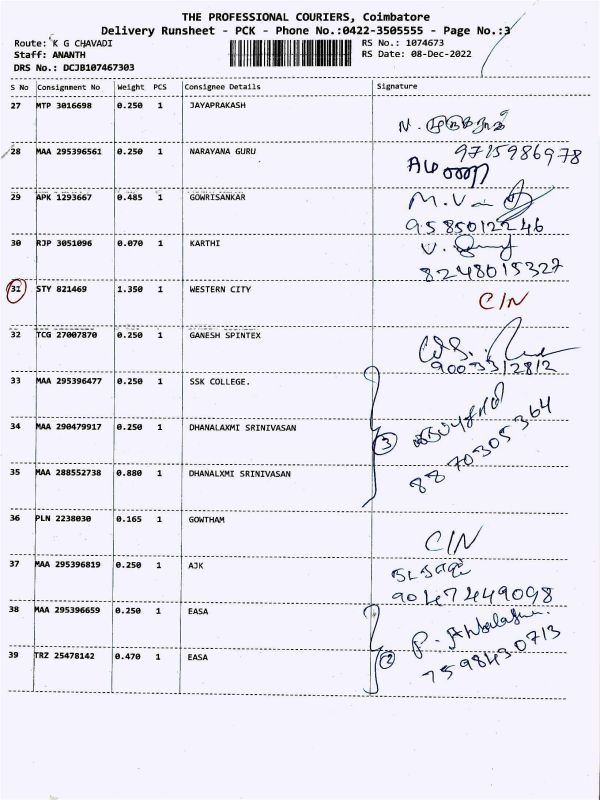 THE PROFESSIONAL COURIERS, Coimbatore
Delivery Runsheet - PCK - Phone No.:0422-3505555 - Page No.:3
Route: K G CHAVADI
RS No.: 1074673
Staff: ANANTH
RS Date: 08-Dec-2022
DRS No.: DCJB107467303
S No Consignment No Weight PCS Consignee Details Signature
27 MTP 3016698 0.250 1 JAYAPRAKASH
N.
28 MAA 295396561 0.250 1 NARAYANA GURU 9715986978
29 APK 1293667 0.485 1 GOWRISANKAR M.V
9585012246
30 RJP 3051096 0.070 1 KARTHI V.
8248015327
31 STY 821469 1.350 1 WESTERN CITY C/N
32 TCG 27007870 0.250 1 GANESH SPINTEX
9003312812
33 MAA 295396477 0.250 1 SSK COLLEGE.
34 MAA 290479917 0.250 1 DHANALAXMI SRINIVASAN 3
8870305364
35 MAA 288552738 0.880 1 DHANALXMI SRINIVASAN
36 PLN 2238030 0.165 1 GOWTHAM C/N
37 MAA 295396819 0.250 1 AJK
9047449098
38 MAA 295396659 0.250 1 EASA P.
39 TRZ 25478142 0.470 1 EASA 2 7598430713